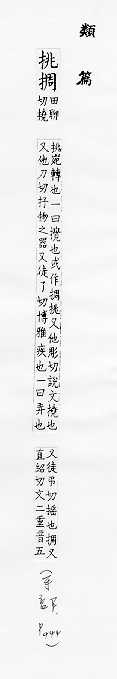 類篇
挑捆
田聊
切撓
挑宛轉也一曰撓也或作捆挑又他彫切說文撓也
又他刀切抒物之器又徒了切博雅疾也一曰弄也
又徒弔切搖也捆又
直紹切文二重音五
P444